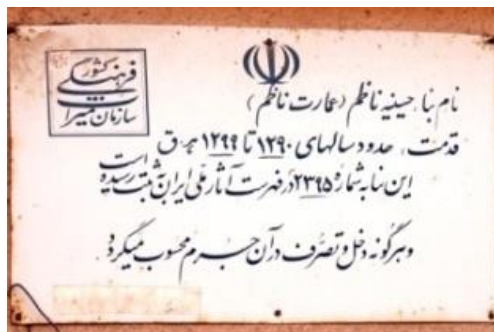 سازمان میراث فرهنگی کشور
نام بنا: حسینیه ناظم (عمارت ناظم)
قدمت: حدود سالهای ۱۲۹۰ تا ۱۲۹۹ هـ ق
این بنا به شماره ۲۳۹۵ در فهرست آثار ملی ایران به ثبت رسیده است
و هرگونه دخل و تصرف در آن جرم محسوب میگردد.